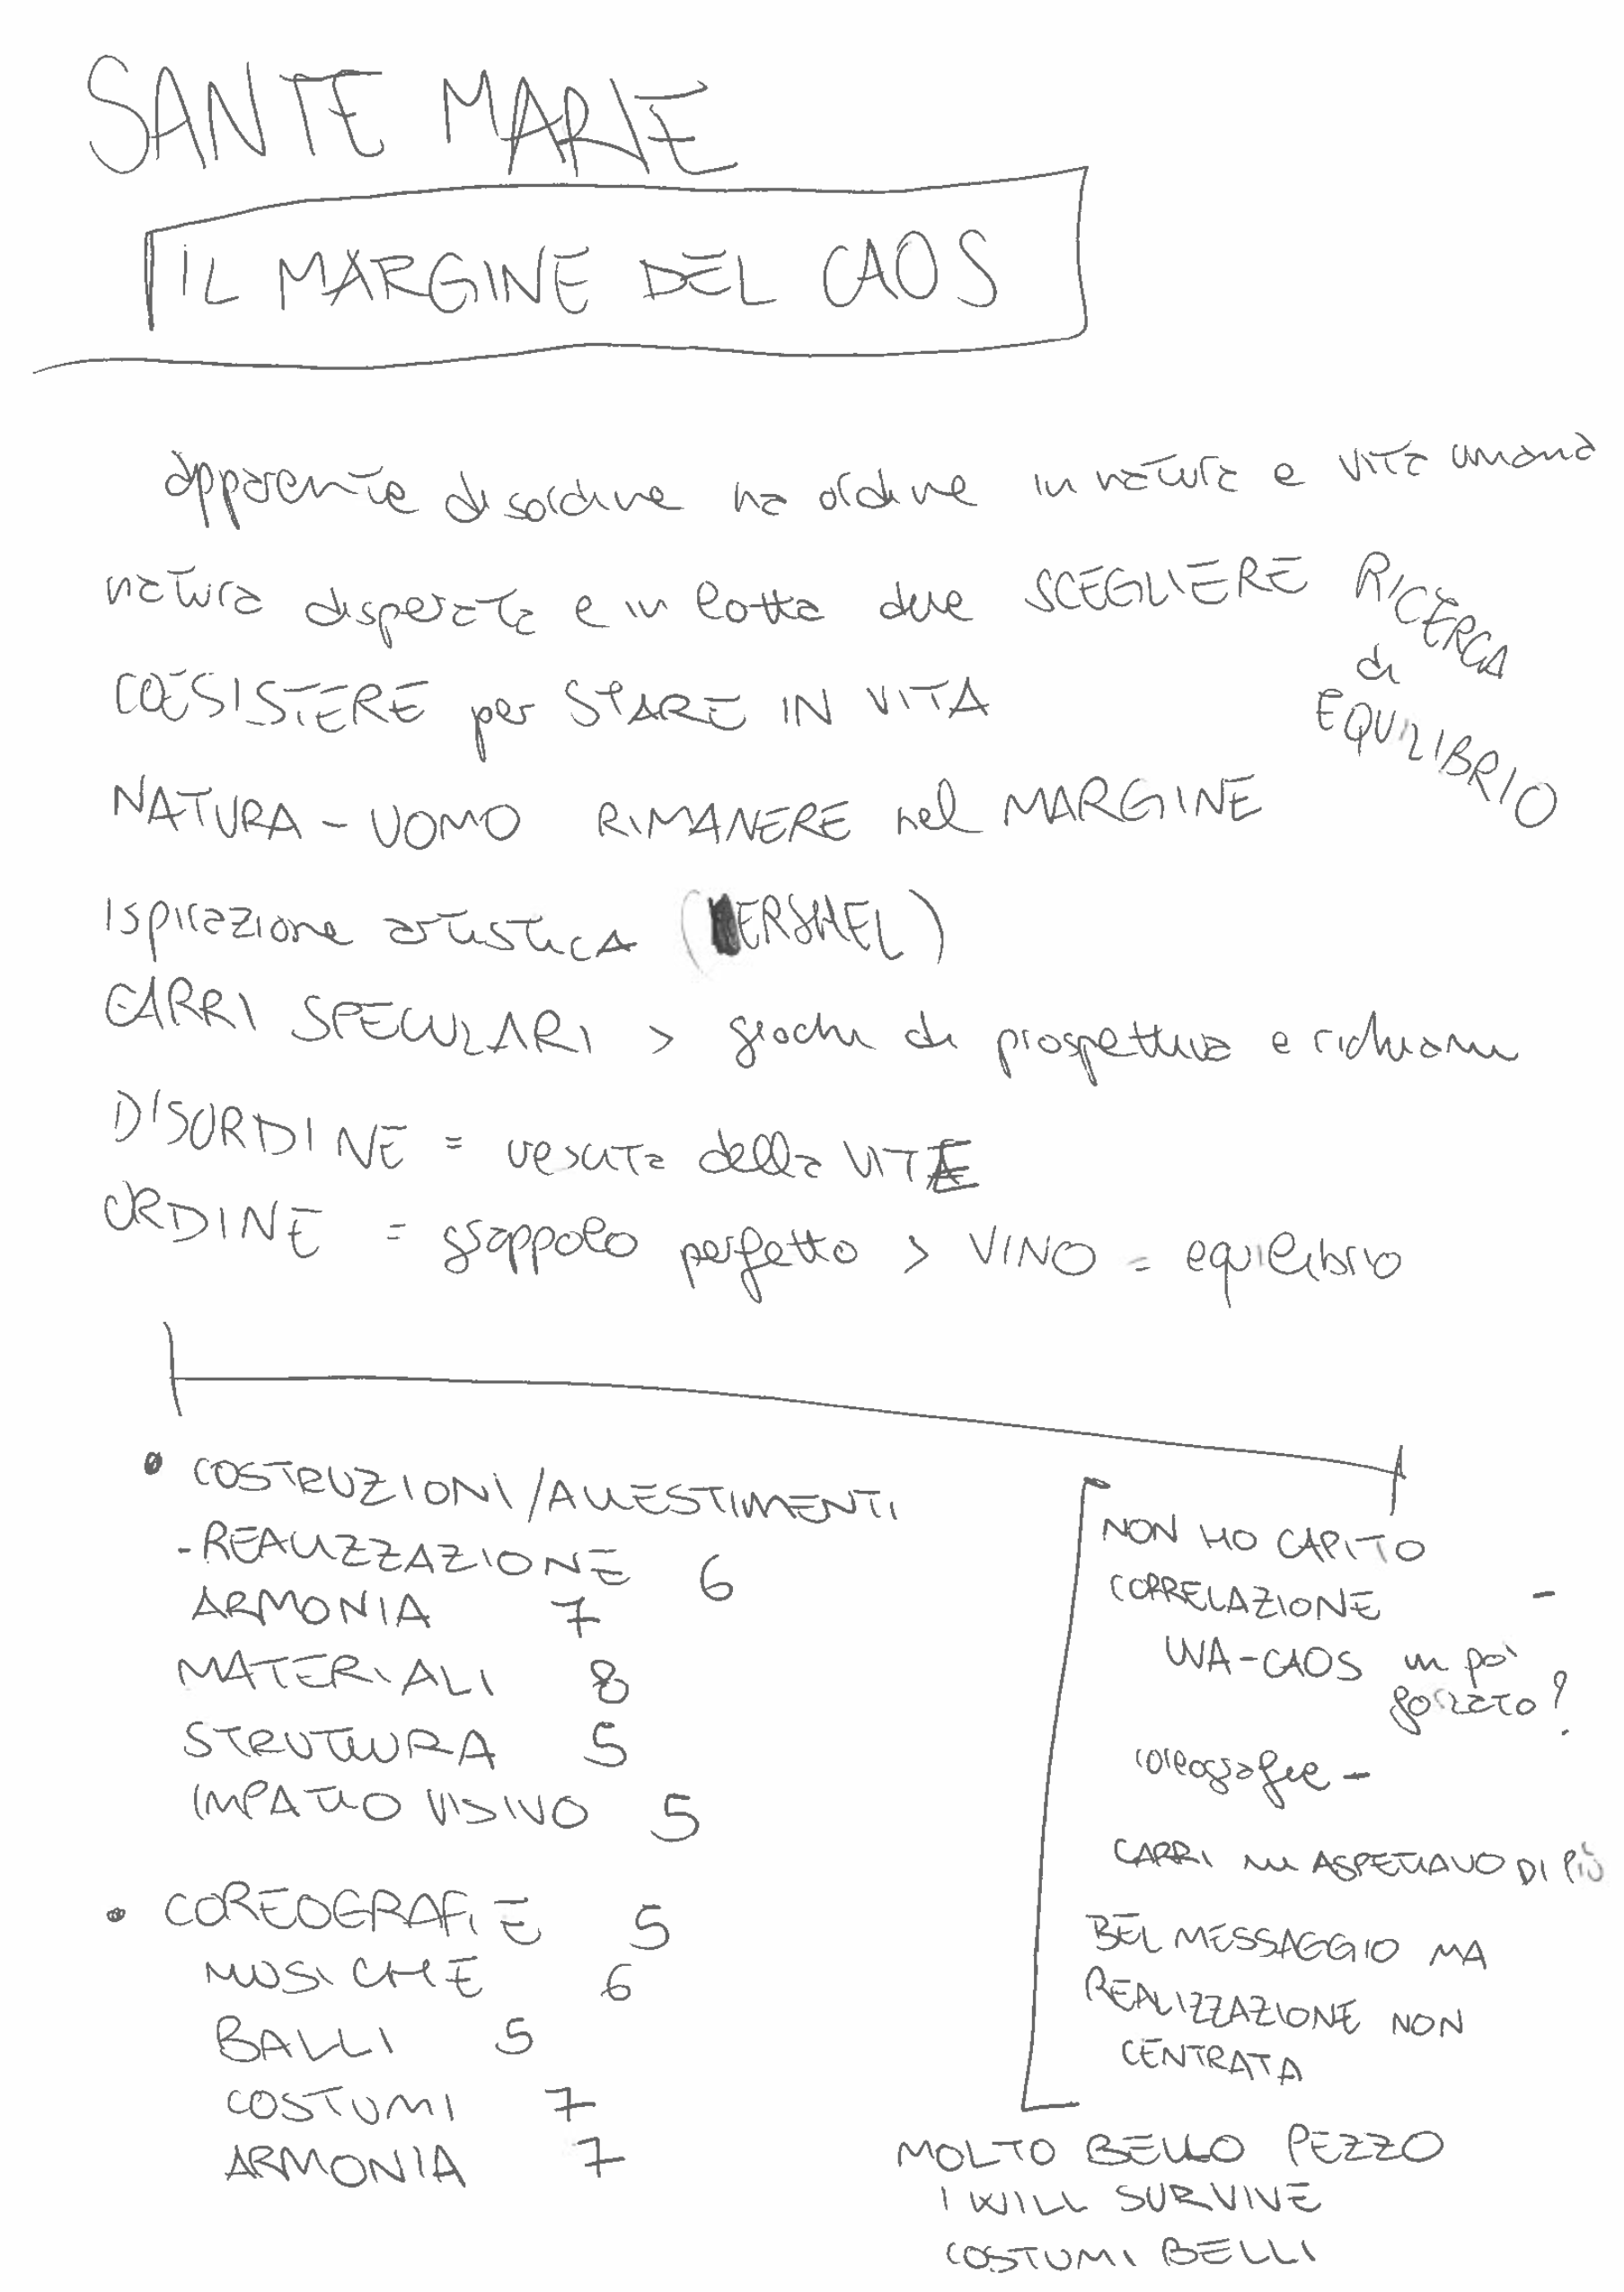 SANTE MARIE
IL MARGINE DEL CAOS
apparente disordine ha ordine in natura e vita umana
natura disperata e in lotta deve SCEGLIERE RICERCA
di
EQUILIBRIO
COESISTERE per STARE IN VITA
NATURA - UOMO RIMANERE nel MARGINE
Ispirazione artistica (ERSHEL)
CARRI SPECULARI > giochi di prospettiva e richiami
DISORDINE = della VITE
ORDINE = grappolo perfetto > VINO = equilibrio
• COSTRUZIONI/ALLESTIMENTI
- REALIZZAZIONE 6
ARMONIA 7
MATERIALI 8
STRUTTURA 5
IMPATTO VISIVO 5
• COREOGRAFIE 5
MUSICHE 6
BALLI 5
COSTUMI 7
ARMONIA 7
NON HO CAPITO
CORRELAZIONE -
UVA-CAOS un po'
forzato?
coreografie -
CARRI MI ASPETTAVO DI PIÙ
BEL MESSAGGIO MA
REALIZZAZIONE NON
CENTRATA
MOLTO BELLO PEZZO
I WILL SURVIVE
COSTUMI BELLI